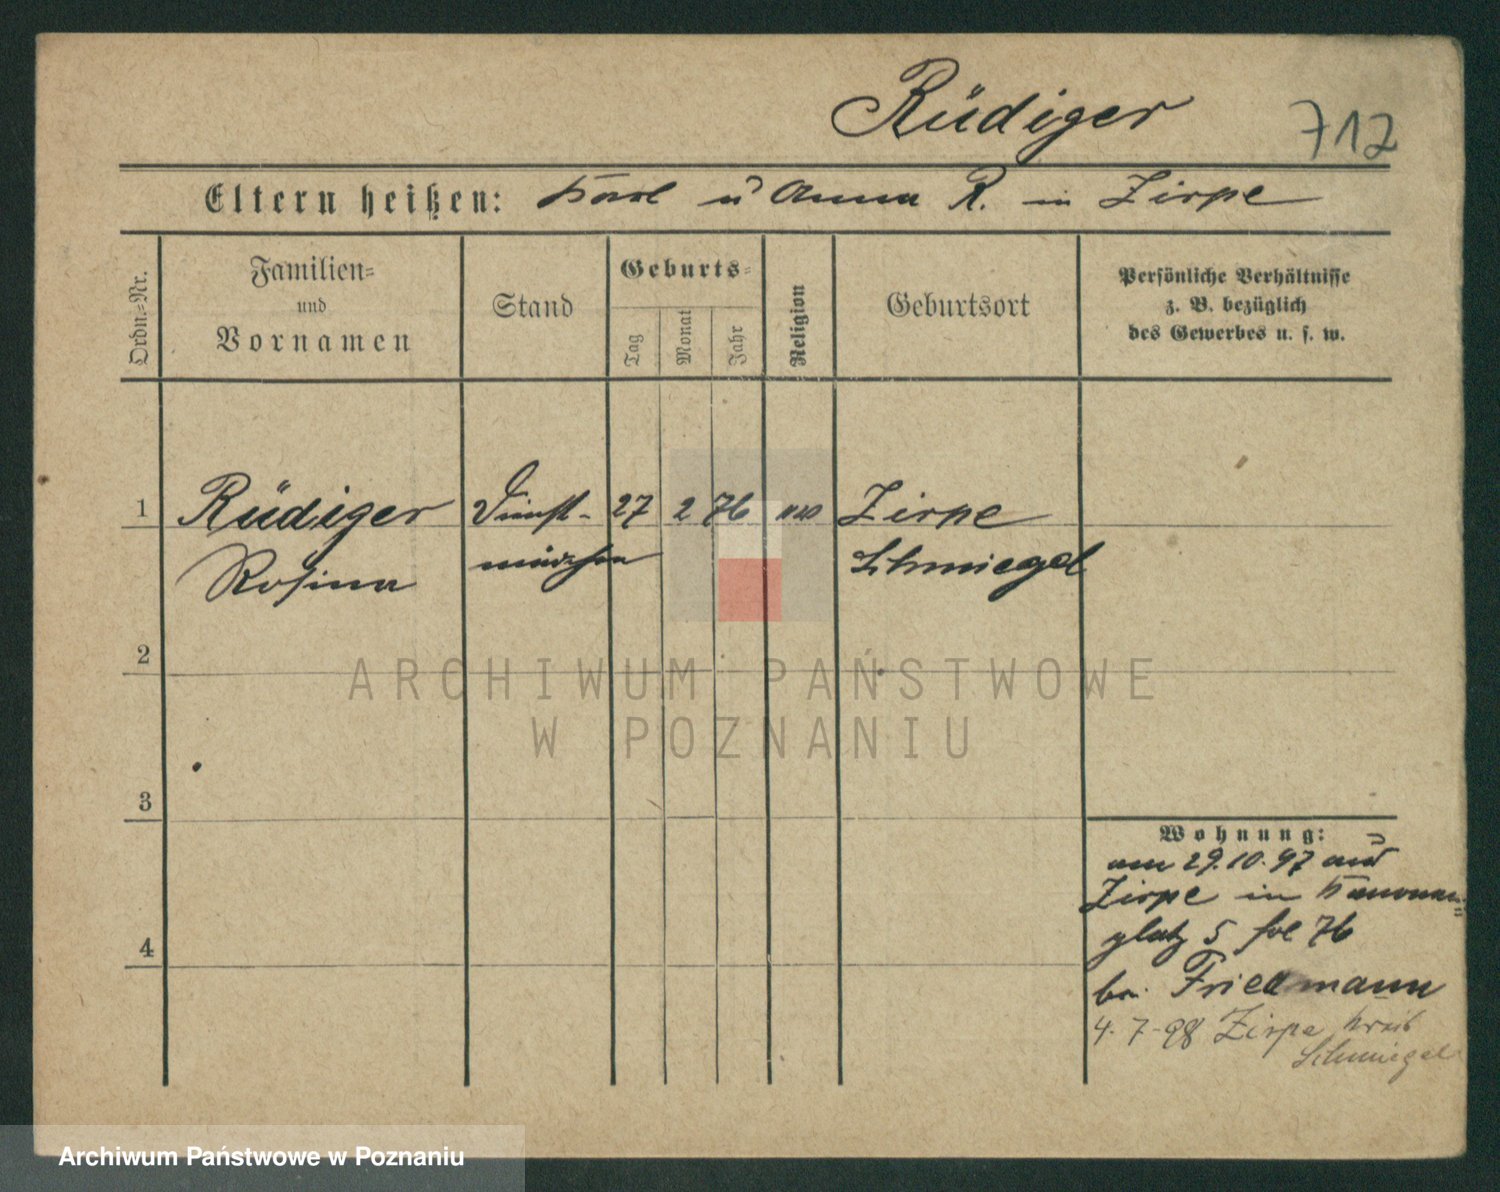 Rüdiger
712
Eltern heißen: Karl u Anna R. in Zirpe
Ordn.=Nr.
Familien=
und
Vornamen
Stand
Geburts=
Tag
Monat
Jahr
Religion
Geburtsort
Persönliche Verhältnisse
z. B. bezüglich
des Gewerbes u. s. w.
1 Rüdiger Dienst- 27 2 76 Zirpe
Rosina mädchen Schmiegel
2
3
4
Wohnung:
am 29.10.97 aus
Zirpe in Kanonen=
platz 5 fol 76
bei Friedmann
4.7-98 Zirpe Kreis
Schmiegel
ARCHIWUM PAŃSTWOWE
W POZNANIU
Archiwum Państwowe w Poznaniu